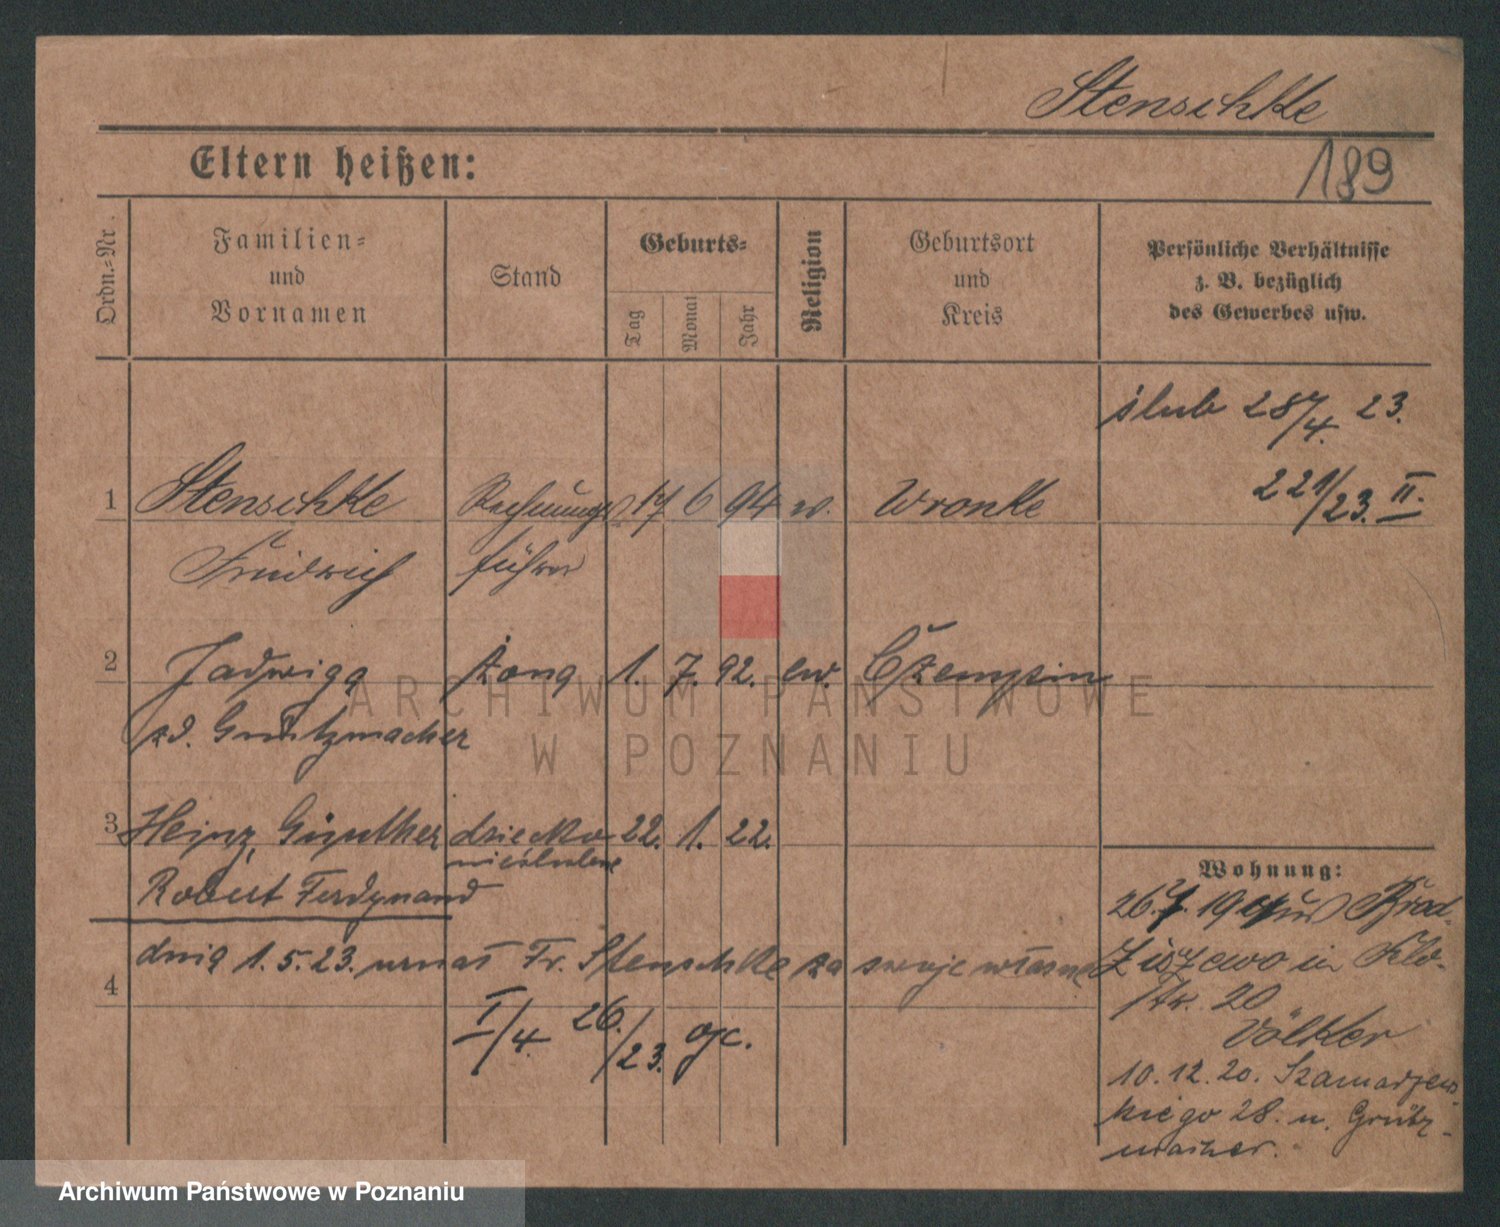 Stenschke
189
Eltern heißen:
Ordn.-Nr.
Familien-
und
Vornamen
Stand
Geburts-
Tag
Monat
Jahr
Religion
Geburtsort
und
Kreis
Persönliche Verhältnisse
z. B. bezüglich
des Gewerbes usw.
ślub 28/4. 23.
221/23. II.
1 Stenschke Rechnungs 17 6 94 ev. Wronke
Friedrich führer
2 Jadwiga żona 1. 7. 92. ew. Czempin
zd. Grützmacher
3 Heinz, Günther dziecko 22. 1. 22.
nieślubne
Robert Ferdynand
4 dnia 1. 5. 23. uznał Fr. Stenschke za swoje własne
I/4. 26./23. ojc.
Wohnung:
26. 7. 19 aus
in
str. 20
Völker
10.12.20. Szamarzews-
kiego 28. u. Grütz-
macher.
ARCHIWUM PAŃSTWOWE
W POZNANIU
Archiwum Państwowe w Poznaniu